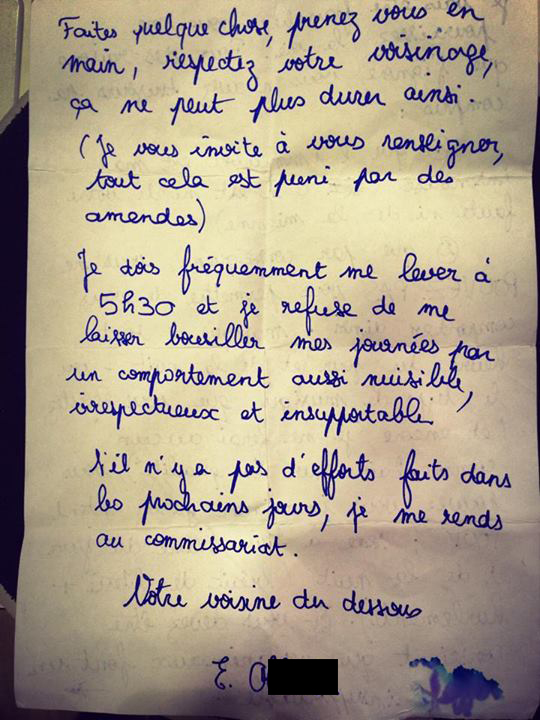 Faites quelque chose, prenez vous en
main, respectez votre voisinage,
ça ne peut plus durer ainsi.
(Je vous invite à vous renseigner,
tout cela est puni par des
amendes)
Je dois fréquemment me lever à
5h30 et je refuse de me
laisser bousiller mes journées par
un comportement aussi nuisible,
irrespectueux et insupportable.
S'il n'y a pas d'efforts faits dans
les prochains jours, je me rends
au commissariat.
Votre voisine du dessous
E.